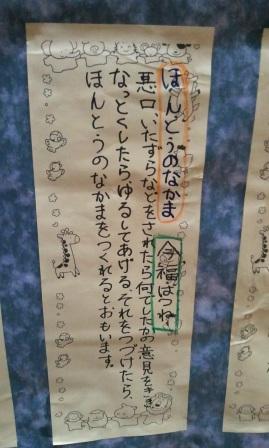 ほんとうのなかま
今福はつね
悪口、いたずらなどをされたら何でしたかの意見をきき、
なっとくしたらゆるしてあげる。それをつづけたら、
ほんとうのなかまをつくれるとおもいます。